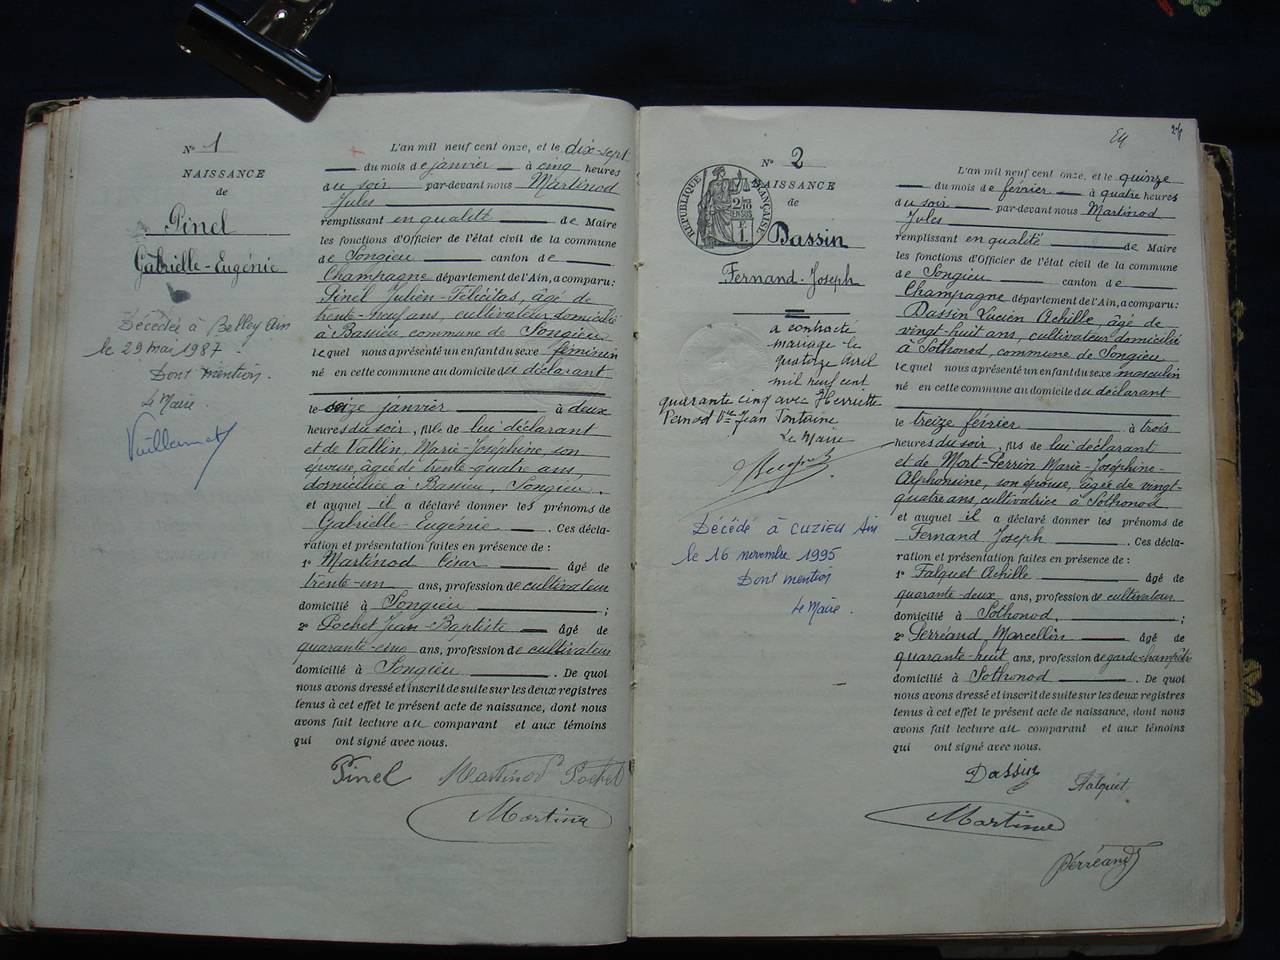 N° 1
NAISSANCE
de
Pinel
Gabrielle-Eugénie
Décédée à Belley Ain
le 29 mai 1987
Dont mention.
Le Maire.
L'an mil neuf cent onze, et le dix-sept
du mois de janvier à cinq heures
du soir par-devant nous Martinod
Jules
remplissant en qualité de Maire
les fonctions d'Officier de l'état civil de la commune
de Songieu canton de
Champagne département de l'Ain, a comparu:
Pinel Julien-Félicitas, âgé de
trente-neuf ans, cultivateur domicilié
à Bassieu, commune de Songieu
lequel nous a présenté un enfant du sexe féminin
né en cette commune au domicile du déclarant
le seize janvier à deux
heures du soir, fille de lui déclarant
et de Vallin, Marie-Joséphine, son
épouse, âgée de trente-quatre ans,
domiciliée à Bassieu, Songieu.
et auquel il a déclaré donner les prénoms de
Gabrielle-Eugénie. Ces décla-
ration et présentation faites en présence de :
1° Martinod César âgé de
trente-un ans, profession de cultivateur
domicilié à Songieu ;
2° Pochet Jean-Baptiste âgé de
quarante-cinq ans, profession de cultivateur
domicilié à Songieu. De quoi
nous avons dressé et inscrit de suite sur les deux registres
tenus à cet effet le présent acte de naissance, dont nous
avons fait lecture au comparant et aux témoins
qui ont signé avec nous.
Pinel Martinod Pochet
Martinod
N° 2
NAISSANCE
de
RÉPUBLIQUE FRANÇAISE
Dassin
Fernand-Joseph
a contracté
mariage le
quatorze avril
mil neuf cent
quarante cinq avec Henriette
Pernod Vve Jean Fontaine
Le Maire
Décédé à CUZIEU Ain
le 16 novembre 1995
Dont mention
Le Maire.
L'an mil neuf cent onze, et le quinze
du mois de février à quatre heures
du soir par-devant nous Martinod
Jules
remplissant en qualité de Maire
les fonctions d'Officier de l'état civil de la commune
de Songieu canton de
Champagne département de l'Ain, a comparu:
Dassin Lucien Achille, âgé de
vingt-huit ans, cultivateur domicilié
à Sothonod, commune de Songieu
lequel nous a présenté un enfant du sexe masculin
né en cette commune au domicile du déclarant
le treize février à trois
heures du soir, fils de lui déclarant
et de Mort-Perrin Marie-Joséphine-
Alphonsine, son épouse, âgée de vingt-
quatre ans, cultivatrice à Sothonod
et auquel il a déclaré donner les prénoms de
Fernand Joseph. Ces décla-
ration et présentation faites en présence de :
1° Falquet Achille âgé de
quarante-deux ans, profession de cultivateur
domicilié à Sothonod ;
2° Perréand, Marcellin âgé de
quarante-huit ans, profession de garde-champêtre
domicilié à Sothonod. De quoi
nous avons dressé et inscrit de suite sur les deux registres
tenus à cet effet le présent acte de naissance, dont nous
avons fait lecture au comparant et aux témoins
qui ont signé avec nous.
Dassin Falquet
Martinod
Perréand